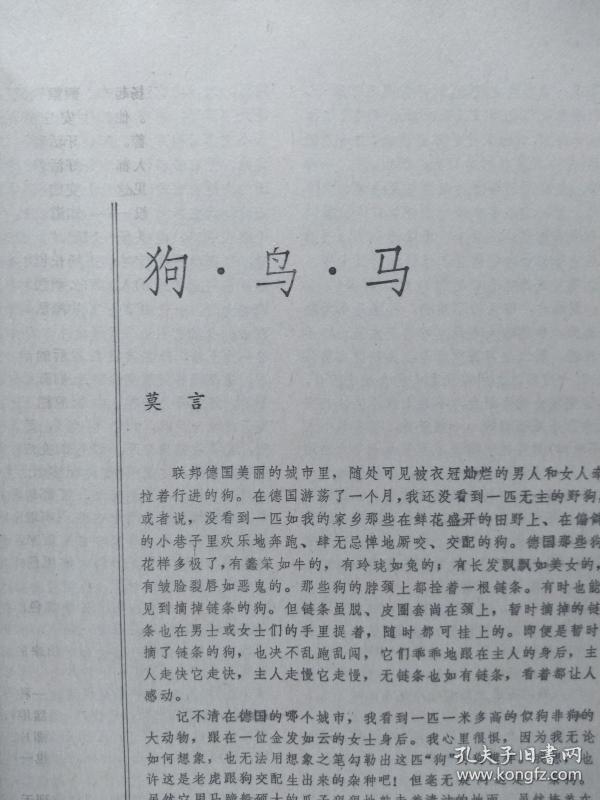 狗·鸟·马
莫言
联邦德国美丽的城市里，随处可见被衣冠灿烂的男人和女人牵
拉着行进的狗。在德国游荡了一个月，我还没看到一匹无主的野狗，
或者说，没看到一匹如我的家乡那些在鲜花盛开的田野上、在偏僻
的小巷子里欢乐地奔跑、肆无忌惮地厮咬、交配的狗。德国那些狗
花样多极了，有蠢笨如牛的，有玲珑如兔的；有长发飘飘如美女的，
有皱脸裂唇如恶鬼的。那些狗的脖颈上都拴着一根链条。有时也能
见到摘掉链条的狗。但链条虽脱、皮圈套尚在颈上，暂时摘掉的链
条也在男士或女士们的手里提着，随时都可挂上的。即便是暂时
摘了链条的狗，也决不乱跑乱闯，它们乖乖地跟在主人的身后，主
人走快它走快，主人走慢它走慢，无链条也如有链条，看着都让人
感动。
记不清在德国的哪个城市，我看到一匹一米多高的似狗非狗的
大动物，跟在一位金发如云的女士身后。我心里很恨，因为我无论
如何想象，也无法用想象之笔勾勒出这匹“狗”
许这是老虎跟狗交配生出来的杂种吧！但毫无
孔夫子旧书网
kongfz.com